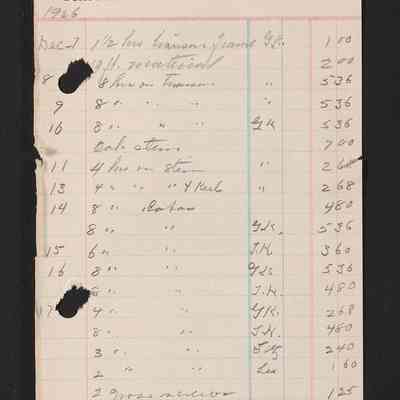 1926
Dec 7 1 1/2 hrs transom frame G.K. 1 00
10 ft. 2 00
8 8 hrs on Transom " 5 36
9 8 " " " " 5 36
10 8 " " " G.K 5 36
Oak stem 7 00
11 4 hrs on Stem " 2 68
13 4 " " " & Keel " 2 68
14 8 " 4 80
8 " " G.K. 5 36
15 6 " " J.K. 3 60
16 8 " " G.K. 5 36
8 " " J.K. 4 80
17 4 " " G.K. 2 68
8 " " J.K. 4 80
3 " " 2 40
2 " " Les 1 60
2 gross screws 1 25